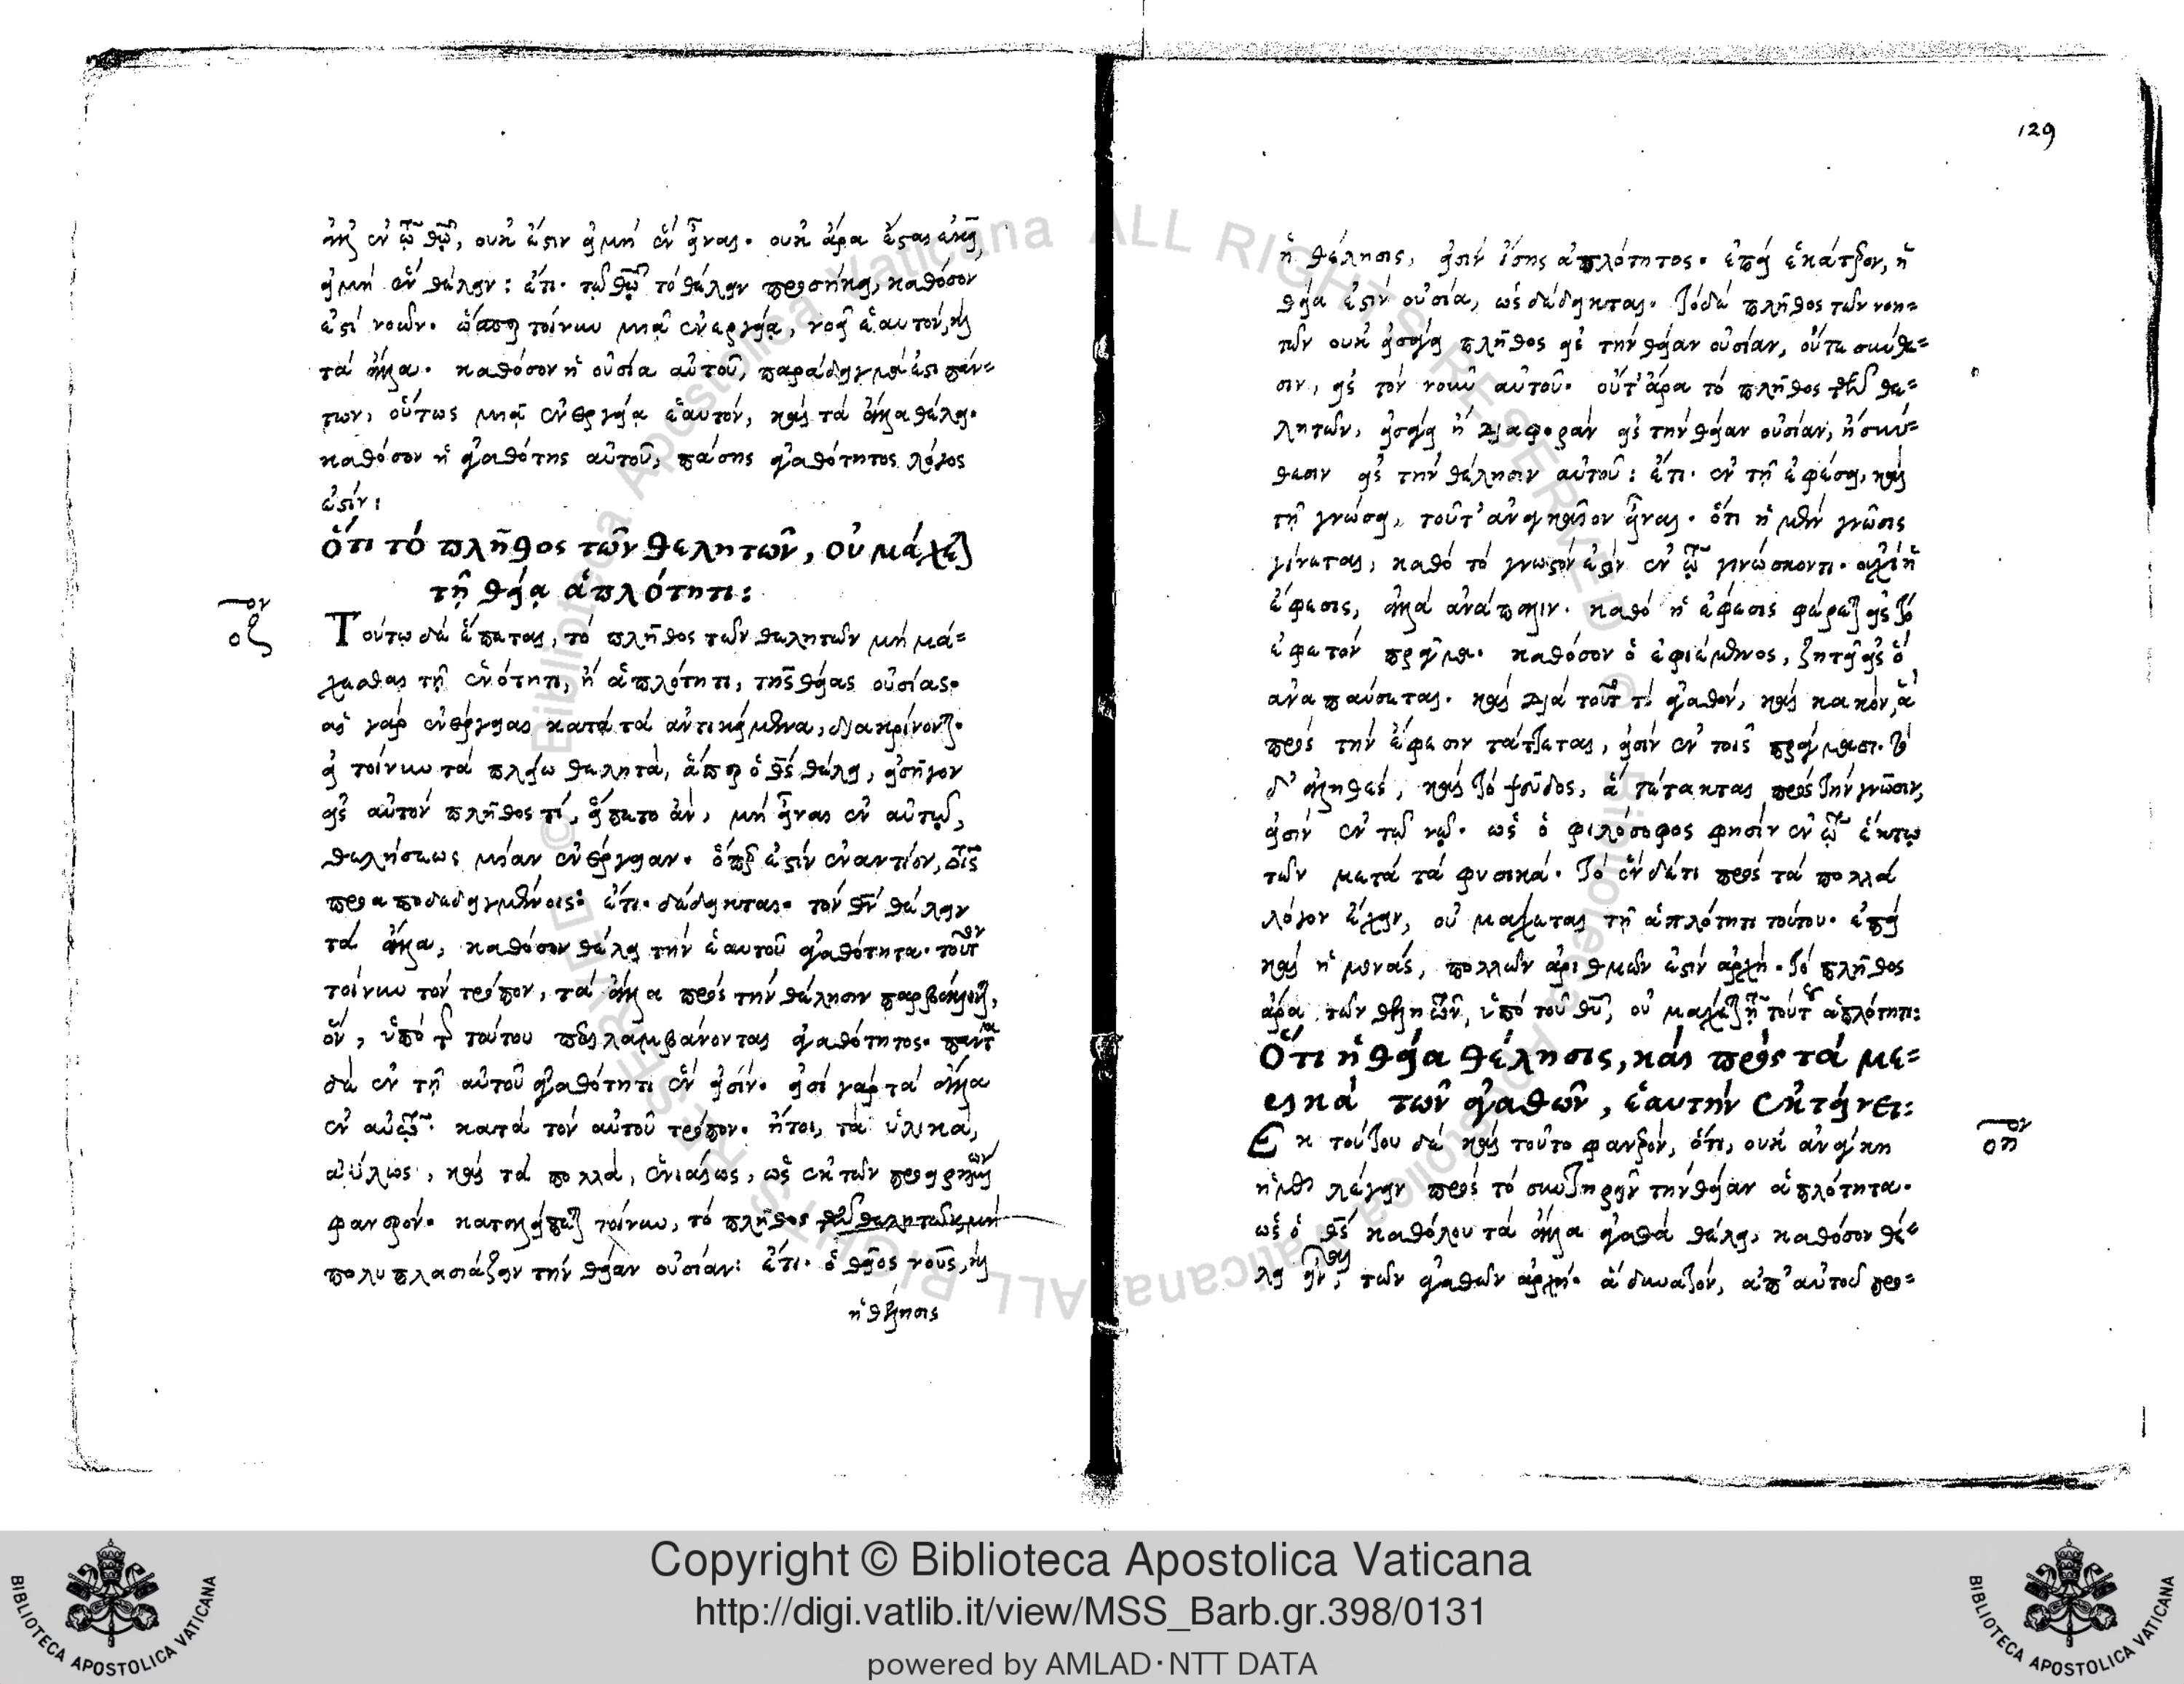 ἀλλ' ἐν τῷ θεῷ, οὐκ ἔστιν εἰ μὴ ἓν εἶναι. οὐκ ἄρα ἔσται ἐκεῖ,
εἰ μὴ ἓν θέλειν: ἔτι. τῷ θεῷ τὸ θέλειν προσήκει, καθόσον
ἐστὶ νοῶν. τοίνυν μιᾷ ἐνεργείᾳ, νοεῖ ἑαυτόν, καὶ
τὰ ἄλλα. καθόσον ἡ οὐσία αὐτοῦ, παράδειγμά ἐστι πάν=
των, οὕτως μιᾷ ἐνεργείᾳ ἑαυτόν, καὶ τὰ ἄλλα θέλει.
καθόσον ἡ ἀγαθότης αὐτοῦ, πάσης ἀγαθότητος λόγος
ἐστίν:
Ὅτι τὸ πλῆθος τῶν θελητῶν, οὐ μάχεται
τῇ θείᾳ ἁπλότητι:
οζον
Τούτῳ δὲ ἕπεται, τὸ πλῆθος τῶν θελητῶν μὴ μά=
χεσθαι τῇ ἑνότητι, ἢ ἁπλότητι, τῆς θείας οὐσίας.
αἱ γὰρ ἐνέργειαι κατὰ τὰ ἀντικείμενα, διακρίνονται.
εἰ τοίνυν τὰ πλείω θελητά, ἅπερ ὁ θεὸς θέλει, εἰσῆγον
εἰς αὐτὸν πλῆθος τί, εἵπετο ἄν, μὴ εἶναι ἐν αὐτῷ,
θελήσεως μίαν ἐνέργειαν. ὅπερ ἐστὶν ἐναντίον, τοῖς
προαποδεδειγμένοις: ἔτι. δέδεικται. τὸν θεὸν θέλειν
τὰ ἄλλα, καθόσον θέλει τὴν ἑαυτοῦ ἀγαθότητα. τοῦτον
τοίνυν τὸν τρόπον, τὰ ἄλλα πρὸς τὴν θέλησιν παραβάλλεται,
ὃν, ὑπὸ τῆς τούτου περιλαμβάνονται ἀγαθότητος. πάντα
δὲ ἐν τῇ αὐτοῦ ἀγαθότητι ἓν εἰσίν. εἰσὶ γὰρ τὰ ἄλλα
ἐν αὐτῷ κατὰ τὸν αὐτοῦ τρόπον. ἤτοι, τὰ ὑλικά,
ἀΰλως, καὶ τὰ πολλά, ἑνιαίως, ὡς ἐκ τῶν προειρημένων
φανερόν. καταλείπεται τοίνυν, τὸ πλῆθος τῶν θελητῶν μὴ
πολυπλασιάζειν τὴν θείαν οὐσίαν: ἔτι. ὁ θεῖος νοῦς, καὶ
ἡ θέλησις
129
ἡ θέλησις, εἰσὶν ἴσης ἁπλότητος. ἐπεὶ ἑκάτερον, ἡ
θεία ἐστὶν οὐσία, ὡς δέδεικται. τὸ δὲ πλῆθος τῶν νοη=
τῶν οὐκ εἰσάγει πλῆθος εἰς τὴν θείαν οὐσίαν, οὔτε σύνθε=
σιν, εἰς τὸν νοῦν αὐτοῦ. οὔτ' ἄρα τὸ πλῆθος τῶν θε=
λητῶν, εἰσάγει ἢ διαφορὰν εἰς τὴν θείαν οὐσίαν, ἢ σύν=
θεσιν εἰς τὴν θέλησιν αὐτοῦ: ἔτι. ἐν τῇ ἐφέσει, καὶ
τῇ γνώσει, τοῦτ' ἀναγκαῖον εἶναι. ὅτι ἡ μὲν γνῶσις
γίνεται, καθὸ τὸ γνωστόν ἐστιν ἐν τῷ γινώσκοντι. οὐχὶ ἡ
ἔφεσις, ἀλλὰ ἀνάπαλιν. καθὸ ἡ ἔφεσις φέρεται εἰς τὸ
ἐφετὸν πρᾶγμα. καθόσον ὁ ἐφιέμενος, ζητεῖ εἰς ὃ
ἀναπαύσεται. καὶ διὰ τοῦτο τὸ ἀγαθόν, καὶ κακόν, ἃ
πρὸς τὴν ἔφεσιν τάττεται, εἰσὶν ἐν τοῖς πράγμασι. τὸ
δ' ἀληθές, καὶ τὸ ψεῦδος, ἃ τέτακται πρὸς τὴν γνῶσιν,
εἰσὶν ἐν τῷ νῷ. ὡς ὁ φιλόσοφος φησὶν ἐν τῷ ἕκτῳ
τῶν μετὰ τὰ φυσικά. τὸ ἓν δέ τι πρὸς τὰ πολλὰ
λόγον ἔχειν, οὐ μάχεται τῇ ἁπλότητι τούτου. ἐπεὶ
καὶ ἡ μονάς, πολλῶν ἀριθμῶν ἐστὶν ἀρχή. τὸ πλῆθος
ἄρα τῶν θελητῶν, ὑπὸ τοῦ θεοῦ, οὐ μάχεται τῇ τούτου ἁπλότητι:
Ὅτι ἡ θεία θέλησις, καὶ πρὸς τὰ με=
ρικὰ τῶν ἀγαθῶν, ἑαυτὴν ἐκτείνει:
οηον
Ἐκ τούτου δὲ καὶ τοῦτο φανερόν, ὅτι, οὐκ ἀνάγκη
ἡμᾶς λέγειν πρὸς τὸ συντηρεῖν τὴν θείαν ἁπλότητα.
ὡς ὁ θεὸς καθόλου τὰ ἄλλα ἀγαθὰ θέλει, καθόσον θέ=
λει εἶναι, τῶν ἀγαθῶν ἀρχή. ἃ δύναται, ἀπ' αὐτοῦ προ=
Copyright © Biblioteca Apostolica Vaticana
http://digi.vatlib.it/view/MSS_Barb.gr.398/0131
powered by AMLAD·NTT DATA
BIBLIOTECA APOSTOLICA VATICANA
BIBLIOTECA APOSTOLICA VATICANA